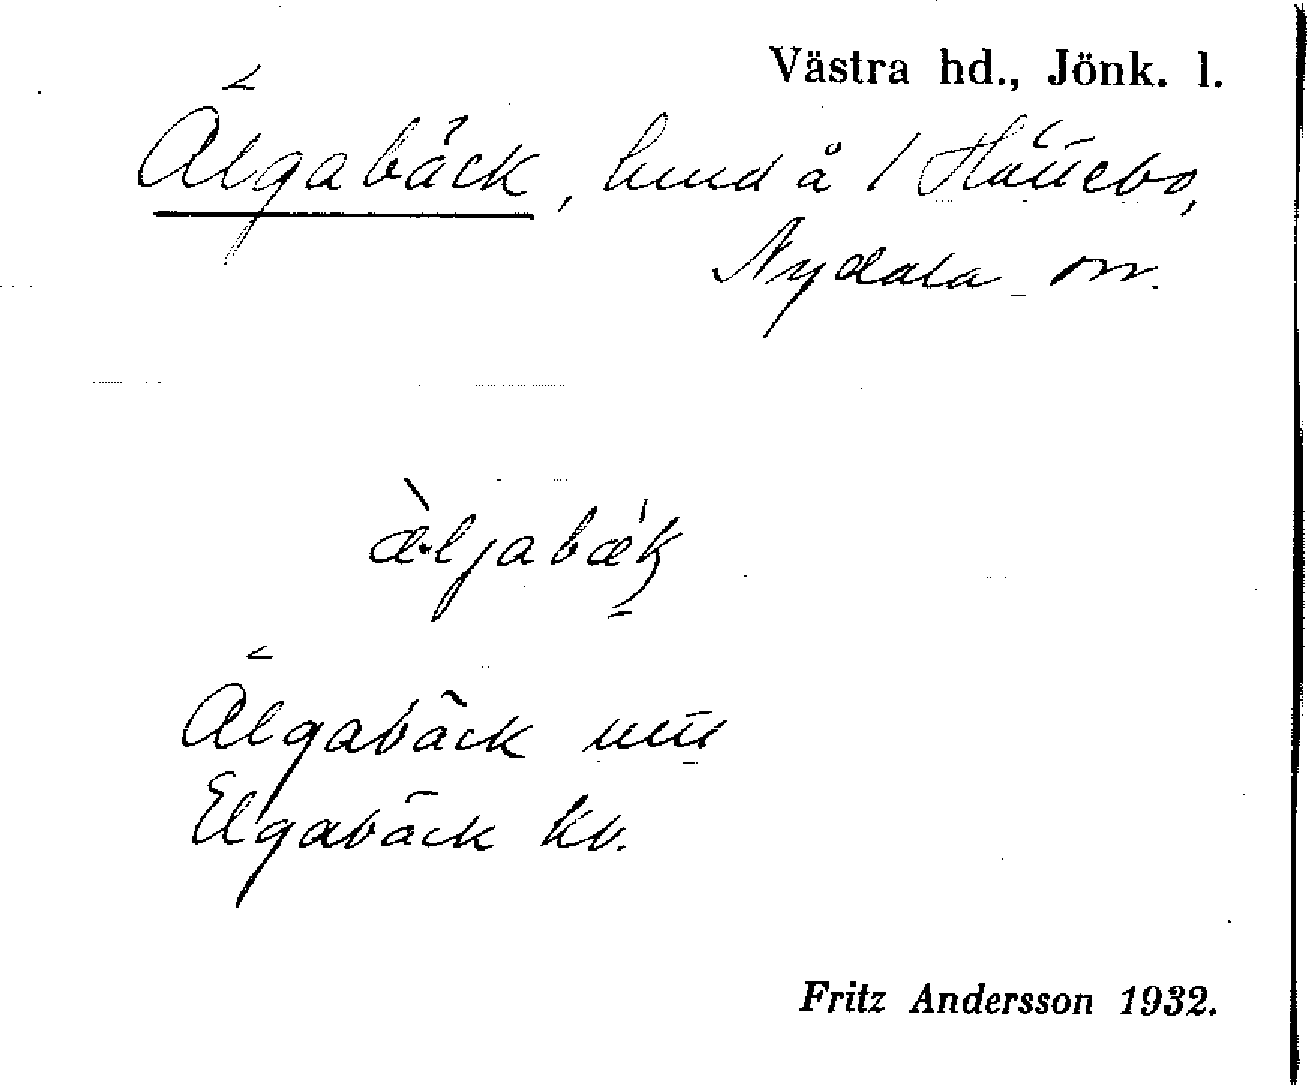 Västra hd., Jönk. l.
Älgabäck, hmd å / Hällebo,
Nydala sn.
æ̀ljabǽk
Älgabäck
Elgabäck kb.
Fritz Andersson 1932.